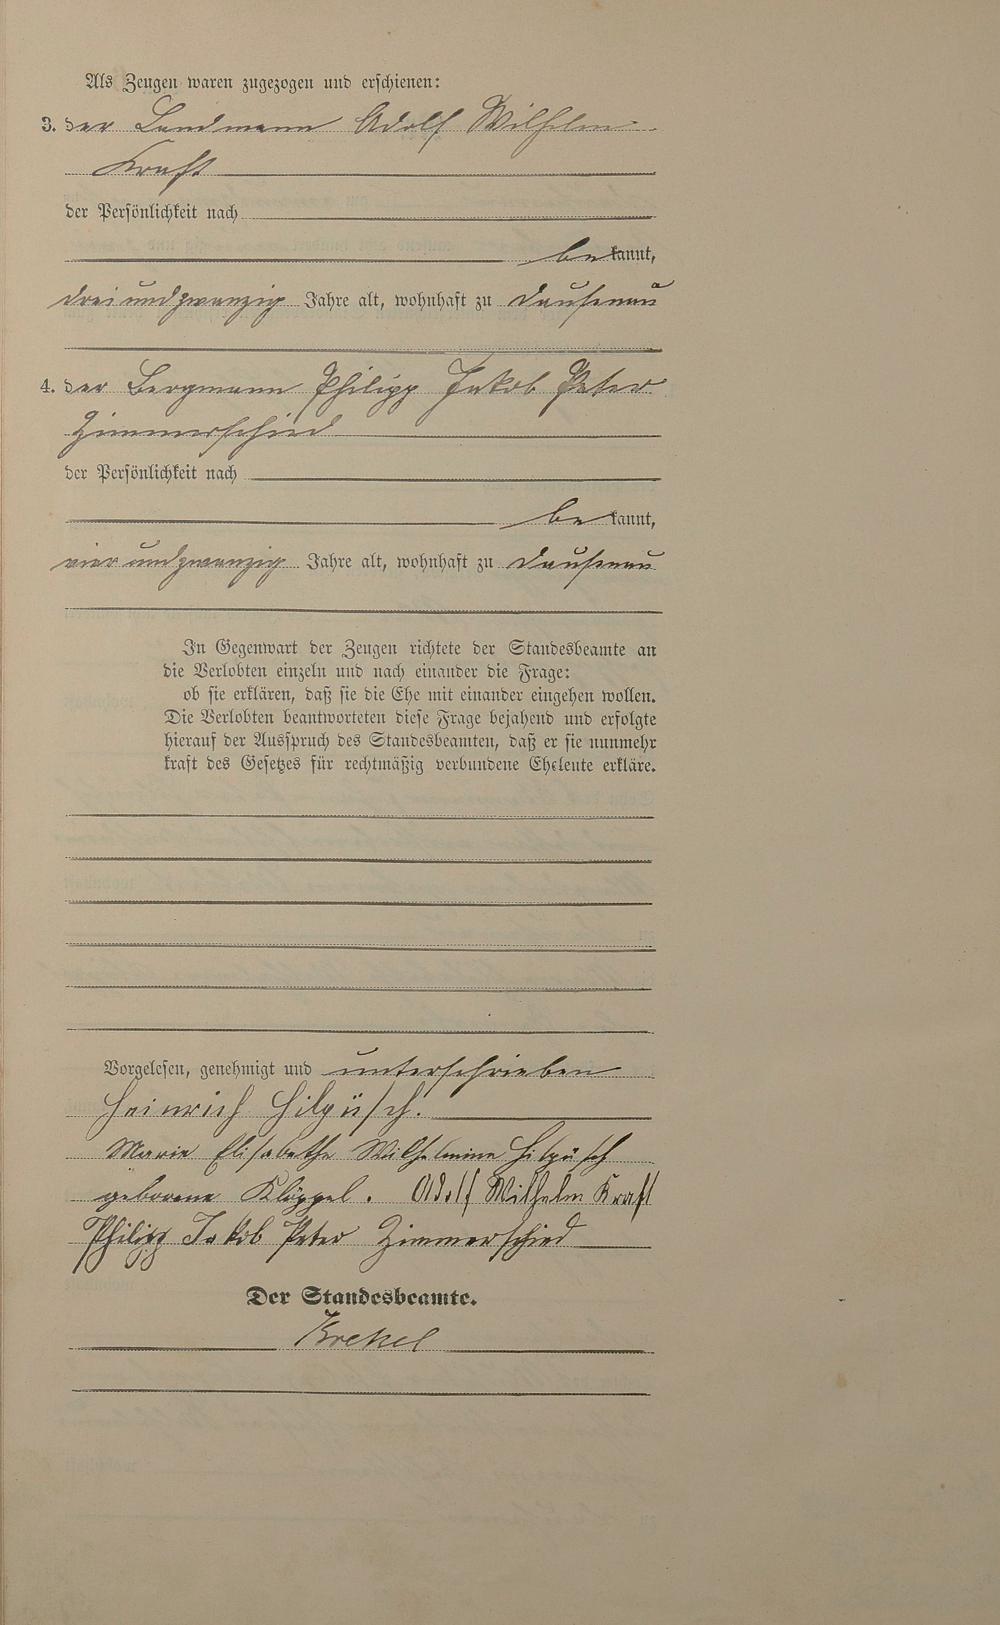 Als Zeugen waren zugezogen und erschienen:
3. der Landmann Adolf Wilhelm
Kraft
der Persönlichkeit nach
bekannt,
dreiundzwanzig Jahre alt, wohnhaft zu Dausenau
4. der Bergmann Philipp Jakob Peter
Zimmerschied
der Persönlichkeit nach
bekannt,
vierundzwanzig Jahre alt, wohnhaft zu Dausenau
In Gegenwart der Zeugen richtete der Standesbeamte an
die Verlobten einzeln und nach einander die Frage:
ob sie erklären, daß sie die Ehe mit einander eingehen wollen.
Die Verlobten beantworteten diese Frage bejahend und erfolgte
hierauf der Ausspruch des Standesbeamten, daß er sie nunmehr
kraft des Gesetzes für rechtmäßig verbundene Eheleute erkläre.
Vorgelesen, genehmigt und unterschrieben
Heinrich Hilpüsch.
Marie Elisabethe Wilhelmine Hilpüsch
geborene Klöppel. Adolf Wilhelm Kraft
Philipp Jakob Peter Zimmerschied
Der Standesbeamte.
Krekel